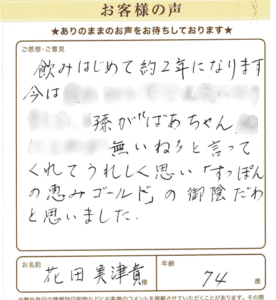 お客様の声
★ありのままのお声をお待ちしております★
ご感想・ご意見
飲みはじめて約2年になります
今は
孫が"ばあちゃん
無いねぇと言って
くれてうれしく思い「すっぽん
の恵みゴールド」の御陰だわ
と思いました.
お名前
花田 美津貴 様
年齢
74 歳